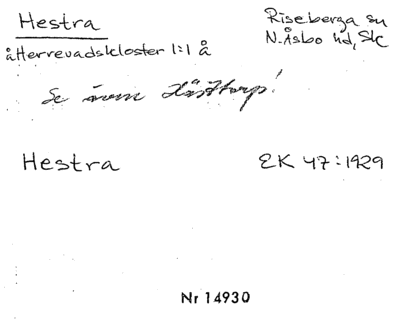 Hestra
Riseberga sn
N. Åsbo hd, Sk
å Herrevadskloster 1:1 å
Se även Hästtorp!
Hestra EK 47:1929
Nr 14930